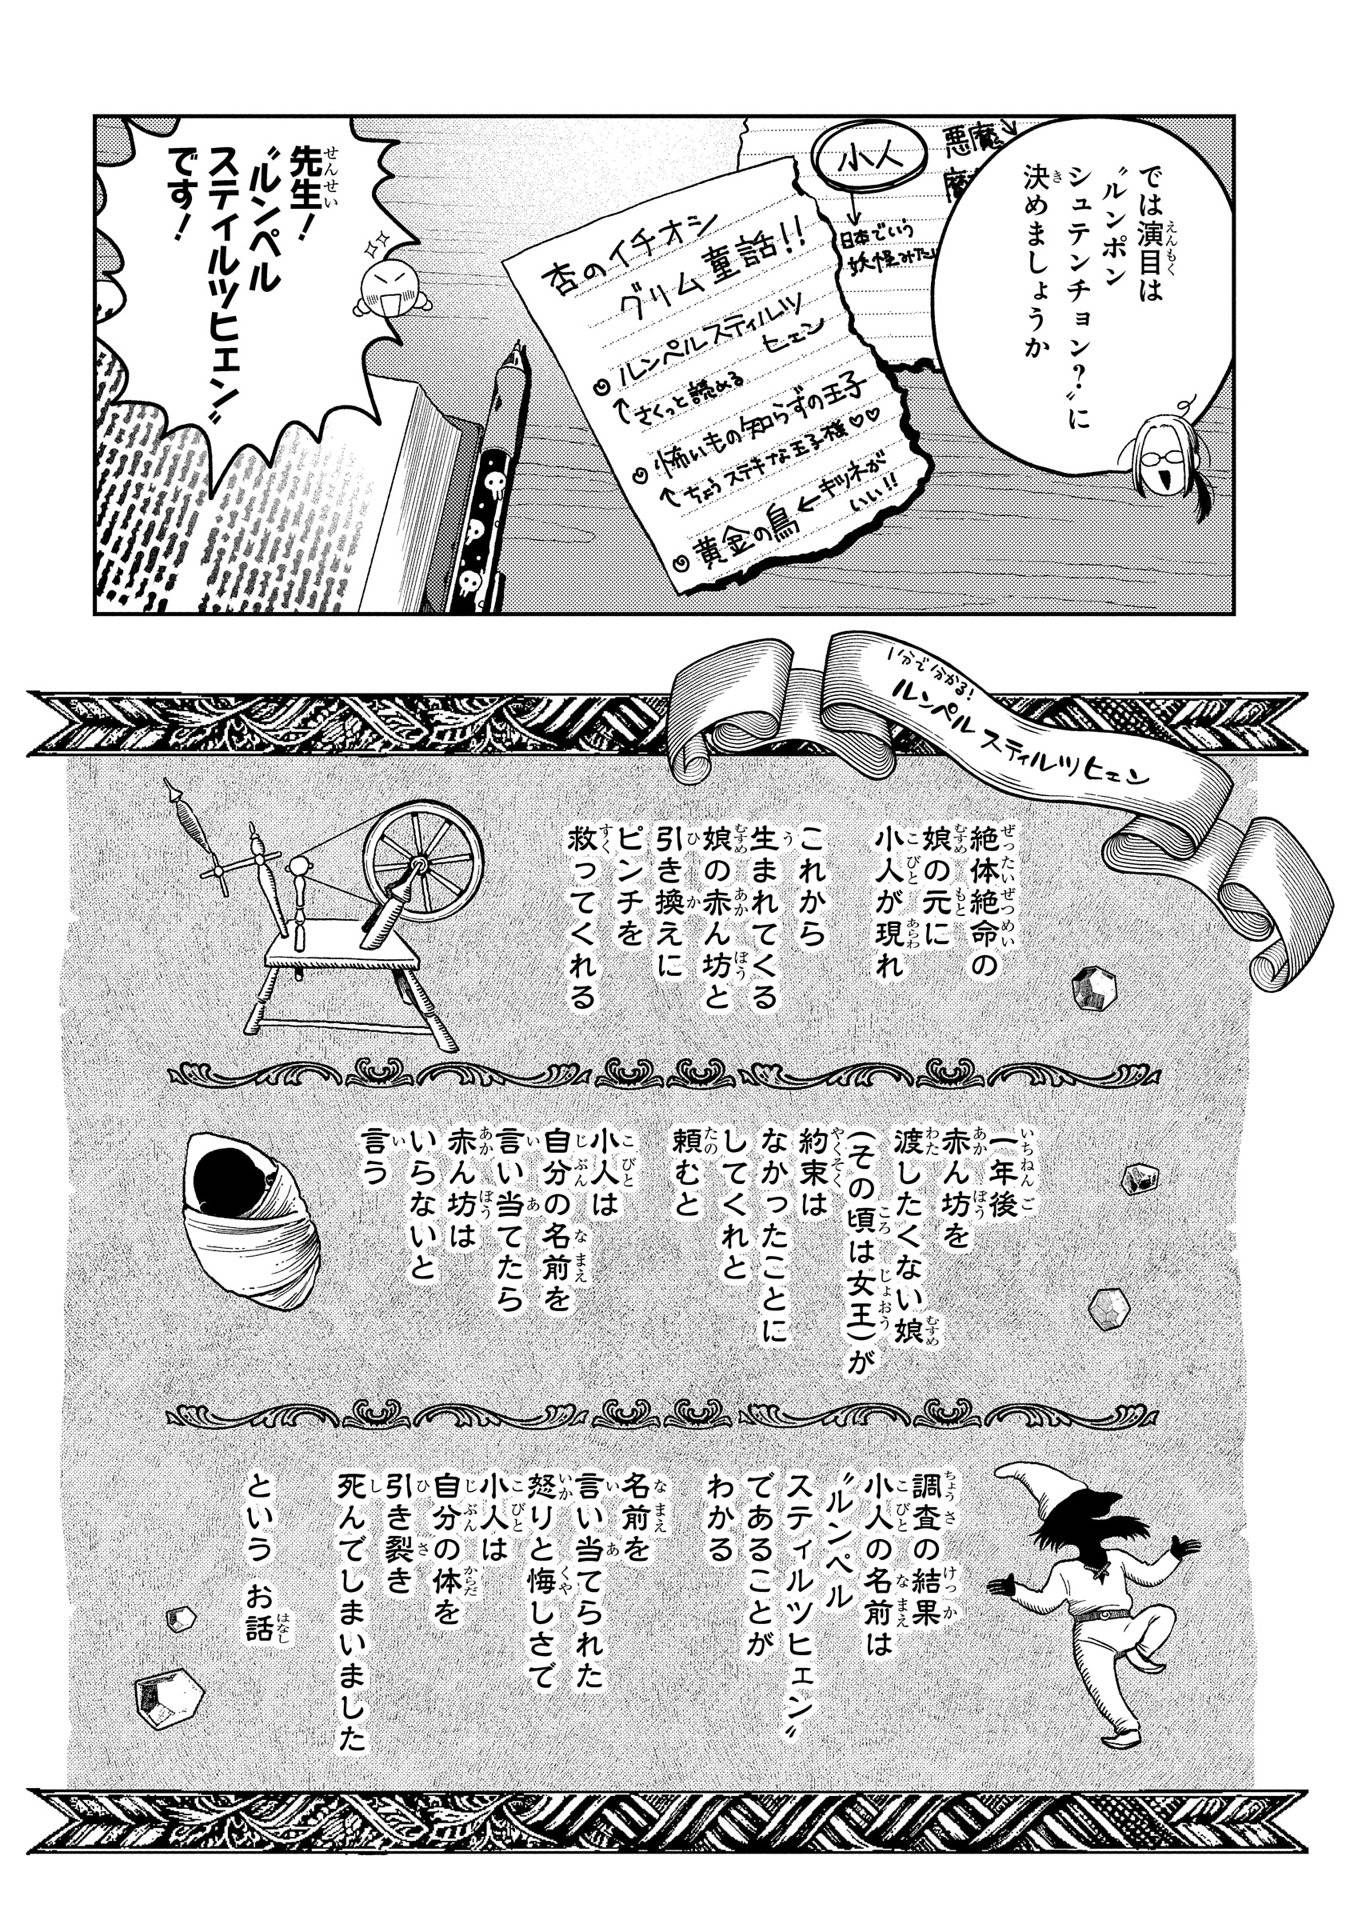 では演目は
〝ルンポン
シュテンチョン？〟に
決めましょうか
小人
悪魔
日本でいう
妖怪みたい
杏のイチオシ
グリム童話!!
ルンペルスティルツ
ヒェン
↑さくっと読める
怖いもの知らずの王子
↑ちょうステキな王子様♡♡
黄金の鳥←キツネが
いい!!
先生！
〝ルンペル
スティルツヒェン〟
です！
1分で分かる！
ルンペルスティルツヒェン
絶体絶命の
娘の元に
小人が現れ
これから
生まれてくる
娘の赤ん坊と
引き換えに
ピンチを
救ってくれる
一年後
赤ん坊を
渡したくない娘
(その頃は女王)が
約束は
なかったことに
してくれと
頼むと
小人は
自分の名前を
言い当てたら
赤ん坊は
いらないと
言う
調査の結果
小人の名前は
〝ルンペル
スティルツヒェン〟
であることが
わかる
名前を
言い当てられた
怒りと悔しさで
小人は
自分の体を
引き裂き
死んでしまいました
という お話